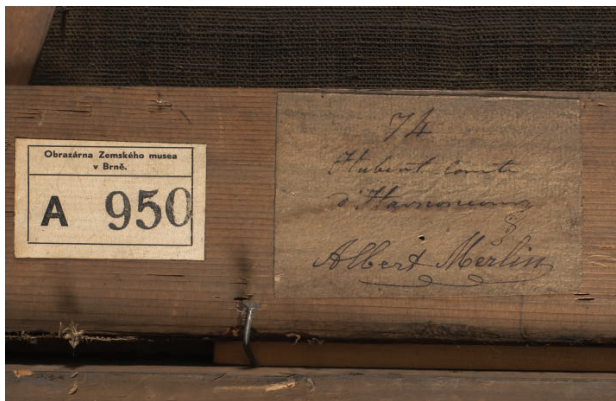 Obrazárna Zemského musea
v Brně.
A 950
74
Hubert comte
d'Harnoncourt
Albert Merlin